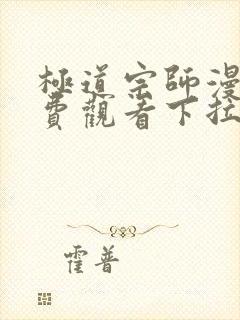 極道宗師漫
費觀看下拉
霍普